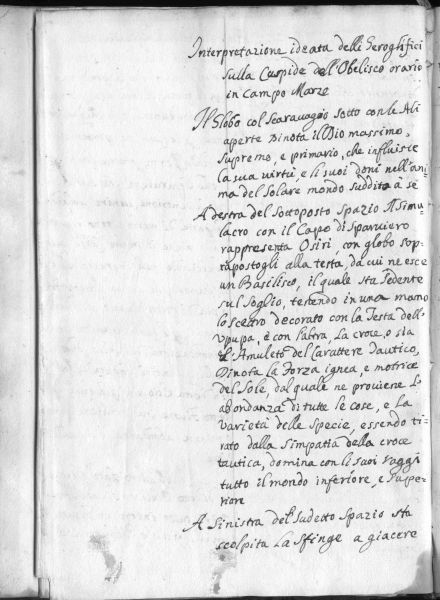 Interpretazione ideata delli Geroglifici
sulla Cuspide dell'Obelisco orario
in Campo Marzo
Il Globo col Scaravaggio sotto con le Ali
aperte Dinota il Dio massimo,
supremo, e primario, che influisce
la sua virtù, e li suoi doni nell'ani
ma del solare mondo suddito a sè
A destra del sottoposto spazio il simu
lacro con il Capo di Sparviero
rappresenta Osiri, con globo sop
rapostogli alla testa, da cui ne esce
un Basilisco, il quale sta sedente
sul soglio, tenendo in una mano
lo scetro decorato con la Testa dell'
Upupa, e con l'altra, La croce, o sia
l'Amuleto del Carattere Tautico,
Dinota La Forza ignea, e motrice
del Sole, dal quale ne proviene L'
abondanza di tutte le cose, e La
varietà delle specie, essendo ti
rato dalla simpatia della croce
tautica, domina con li suoi raggi
tutto il mondo inferiore, e supe
riore
A sinistra del sudetto spazio sta
scolpita La Sfinge a giacere